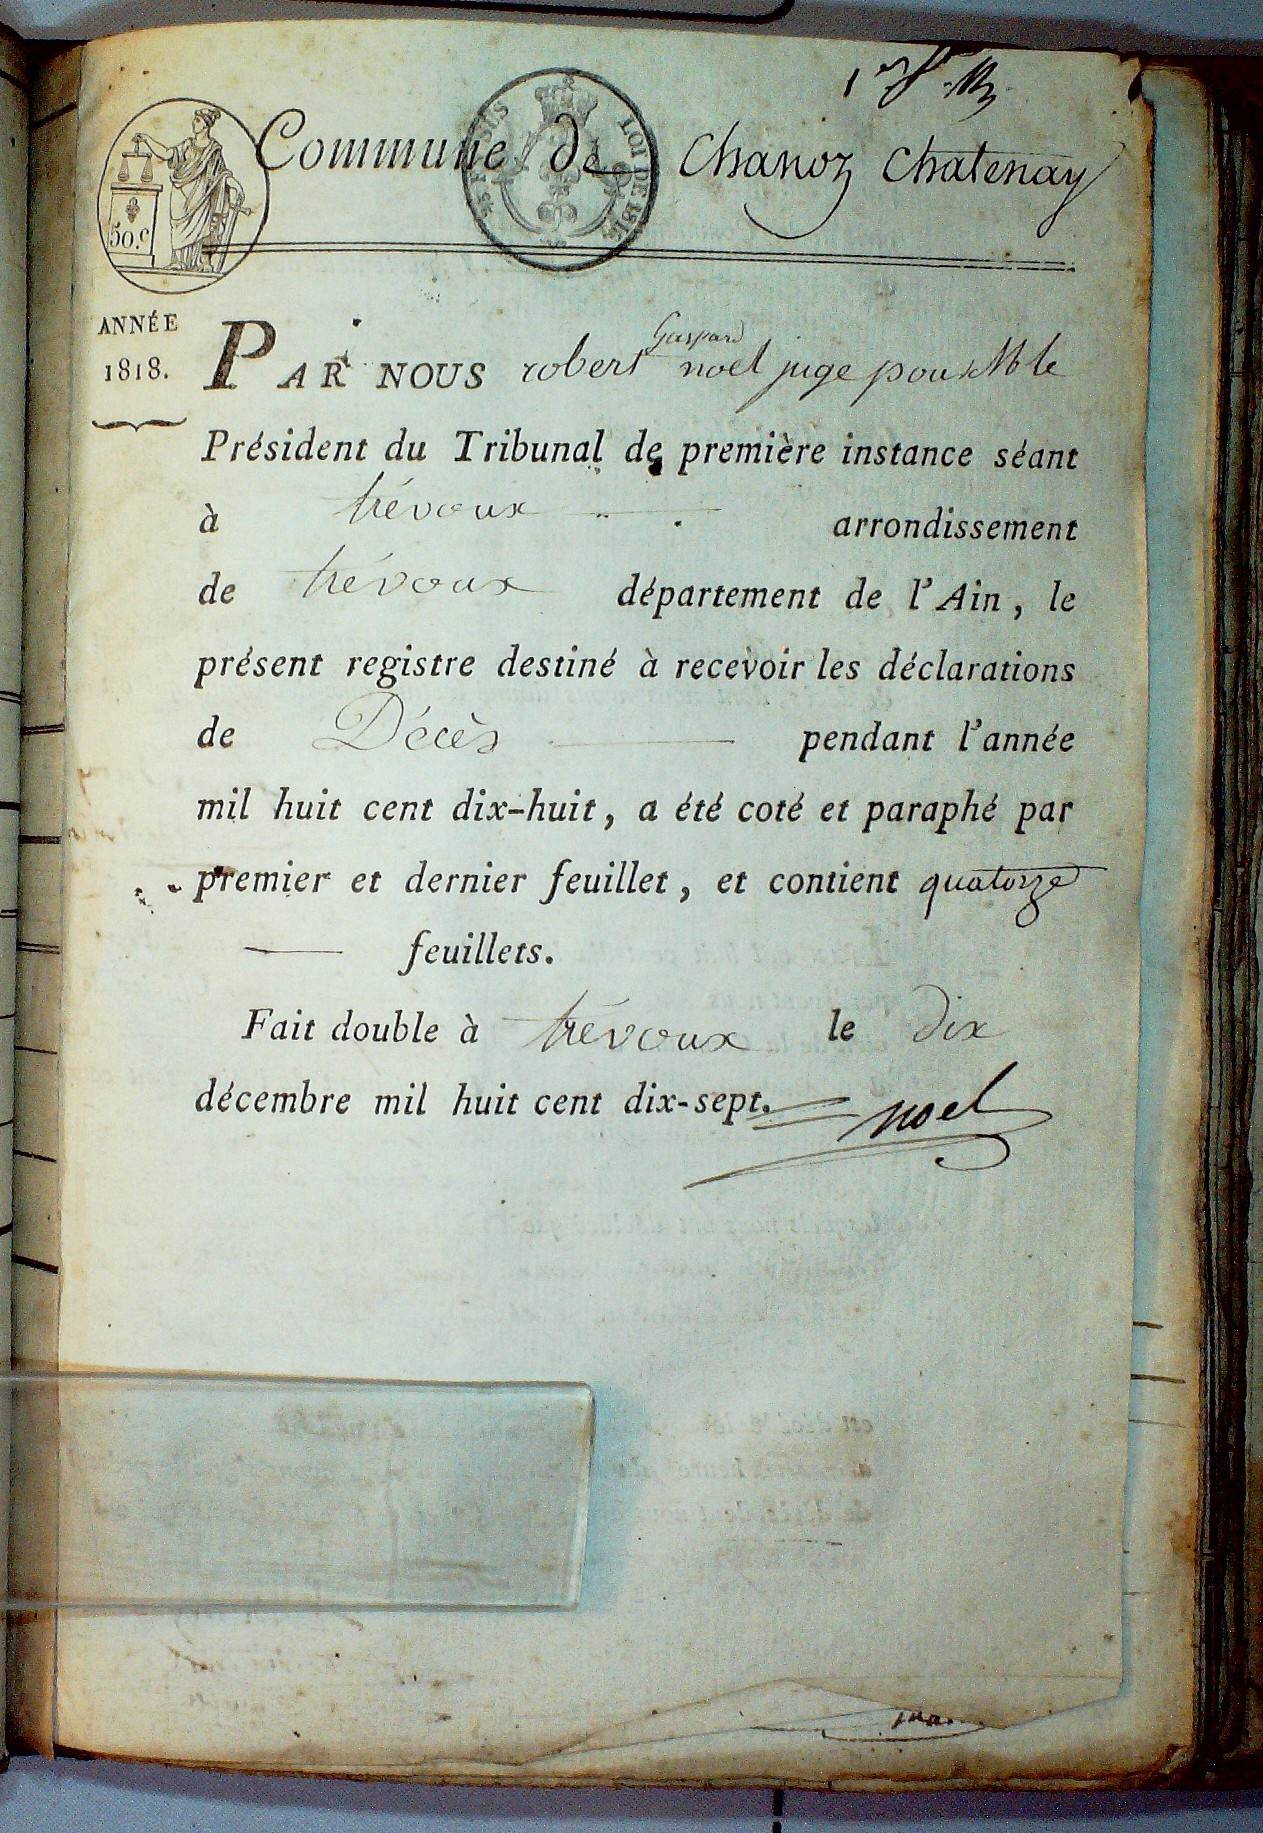 1er
Commune de Chanoz Chatenay
50.c
ANNÉE
1818.
Gaspard
PAR NOUS robert noel juge pour Mr le
Président du Tribunal de première instance séant
à trévoux arrondissement
de trévoux département de l'Ain, le
présent registre destiné à recevoir les déclarations
de Décès pendant l'année
mil huit cent dix-huit, a été coté et paraphé par
premier et dernier feuillet, et contient quatorze
feuillets.
Fait double à trévoux le dix
décembre mil huit cent dix-sept.
noel